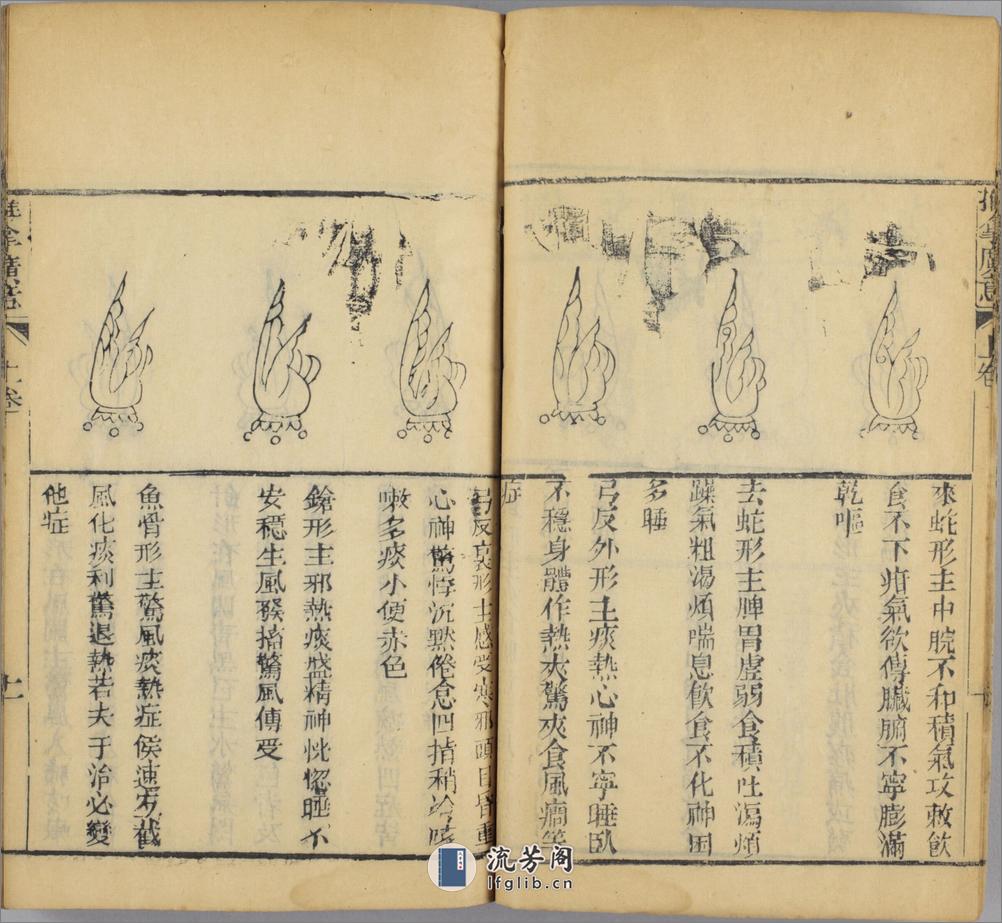 來蛇形主中脘不和積氣攻敕飲
食不下疳氣欲傳臟腑不寧膨滿
乾嘔
去蛇形主脾胃虛弱食積吐瀉煩
躁氣粗渴煩喘息飲食不化神困
多睡
弓反外形主痰熱心神不寧睡臥
不穩身體作熱夾驚夾食風癇等
症
弓反裏形主感受寒邪頭目昏重
心神驚悸沉默倦怠四指稍冷咳
嗽多痰小便赤色
鎗形主邪熱痰盛精神恍惚睡不
安穩生風發搐驚風傳受
魚骨形主驚風痰熱症候速
風化痰利驚退熱若夫于治必變
他症
推拿廣意
卷
十一
流芳阁
lfglib.cn